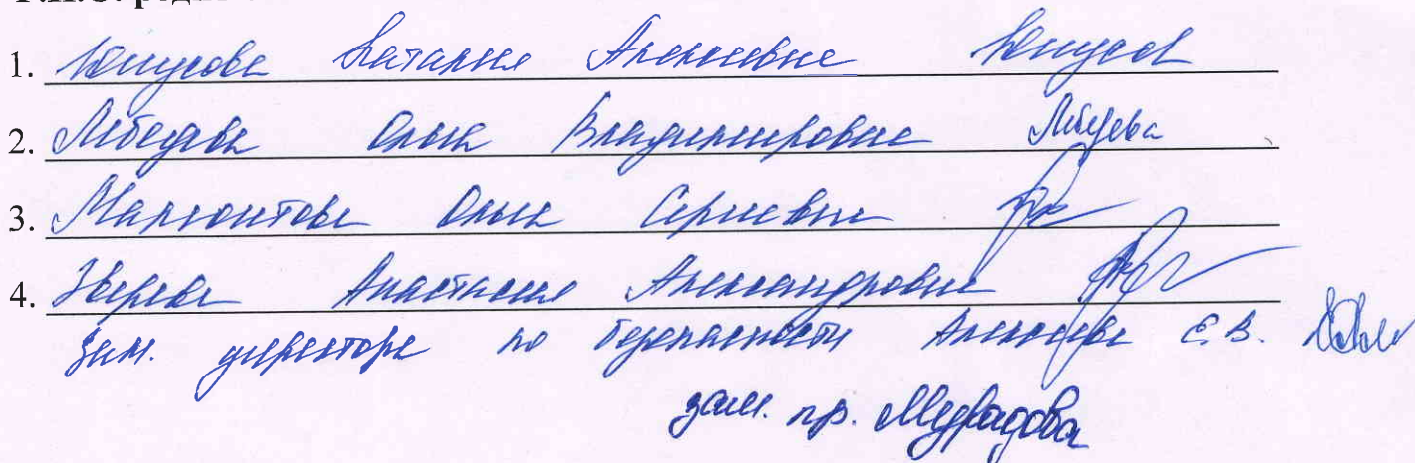 1. Юнусова Наталия Алексеевна Юнусов
2. Лебедева Ольга Владимировна Лебедева
3. Ольга Сергеевна
4. Зверева Анастасия Александровна
Зам. директора по безопасности Алексеева Е.В.
зам. пр. Мурадова